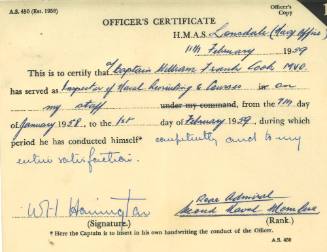 A.S. 450 (Est. 1958)
Officer's Copy
OFFICER'S CERTIFICATE
H.M.A.S. Lonsdale (Navy Office)
11th February 1959
This is to certify that Captain William Frank Cook
has served as Inspector of Naval Recruiting & on
my staff under my command, from the 7th day
of January 1958, to the 1st day of February 1959, during which
period he has conducted himself* competently and to my
entire satisfaction.
W H Harrington
(Signature.)
Rear Admiral
Second Naval Member
(Rank.)
* Here the Captain is to insert in his own handwriting the conduct of the Officer.
A.S. 450